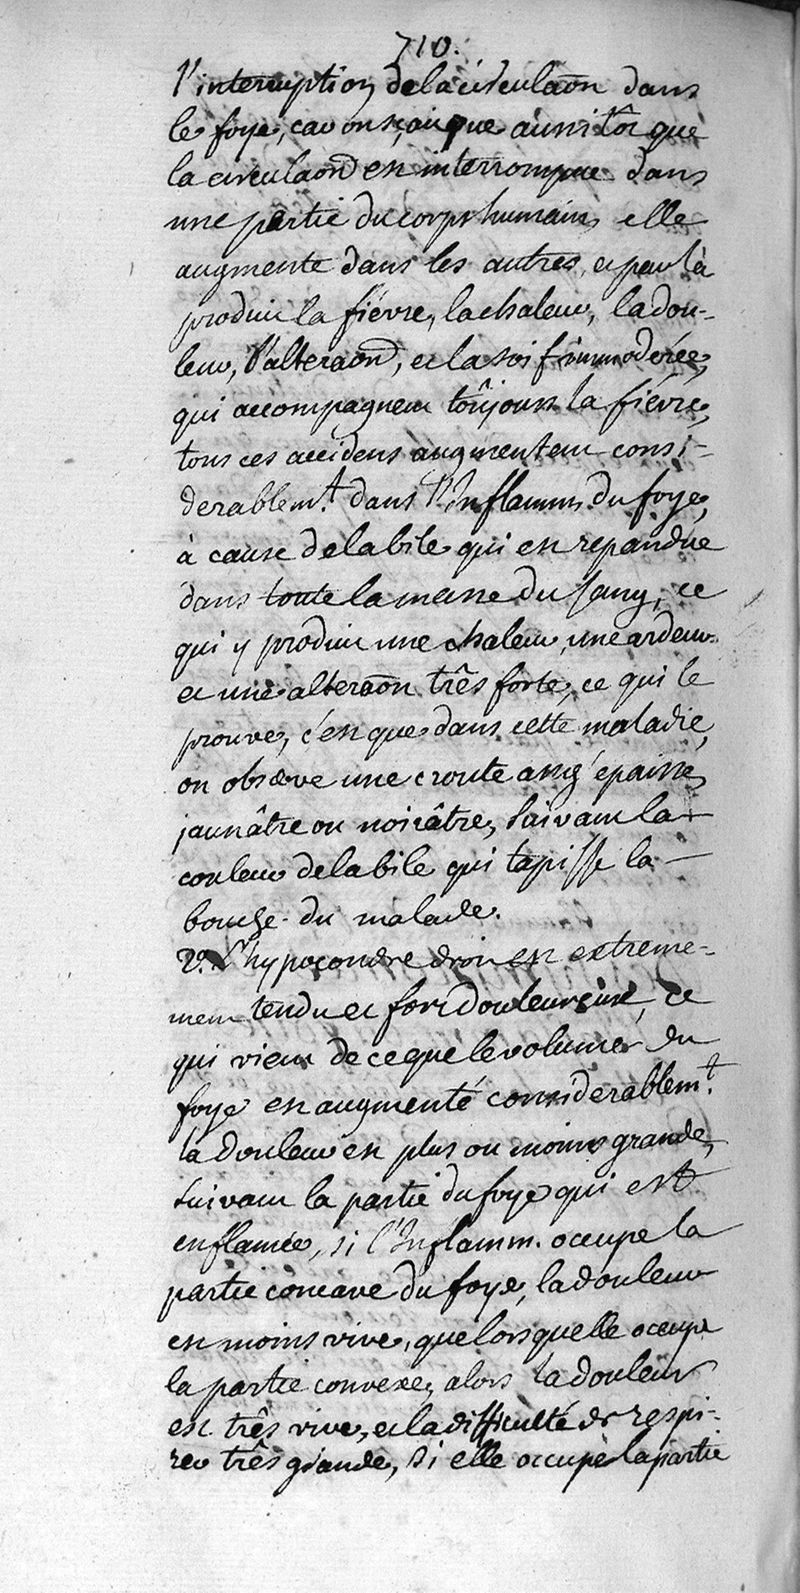 710.
l'interruption de la circulaõn dans
le foye, car on sçait que aussitôt que
la circulaõn est interrompue dans
une partie du corps humain, elle
augmente dans les autres, et par là
produit la fiévre, la chaleur, la dou-
leur, l'alteraõn, et la soif immoderée,
qui accompagnent toûjours la fiévre,
tous ces accidens augmentent consi-
derablem.t dans l'Inflamm. du foye,
à cause de la bile qui est repandue
dans toute la masse du sang, ce
qui y produit une chaleur, une ardeur
et une alteraõn três forte, ce qui le
prouve, c'est que dans cette maladie,
on observe une croute assés épaisse,
jaunâtre ou noirâtre, suivant la
couleur de la bile qui tapisse la
bouche du malade.
2.° l'hypocondre droit est extreme-
ment tendu et fort douloureux, ce
qui vient de ce que le volume du
foye est augmenté considerablem.t
la douleur est plus ou moins grande,
suivant la partie du foye qui est
enflamée, si l'Inflamm. occupe la
partie concave du foye, la douleur
est moins vive, que lorsquelle occupe
la partie convexe, alors la douleur
est três vive, et la difficulté de respi-
rer três grande, si elle occupe la partie